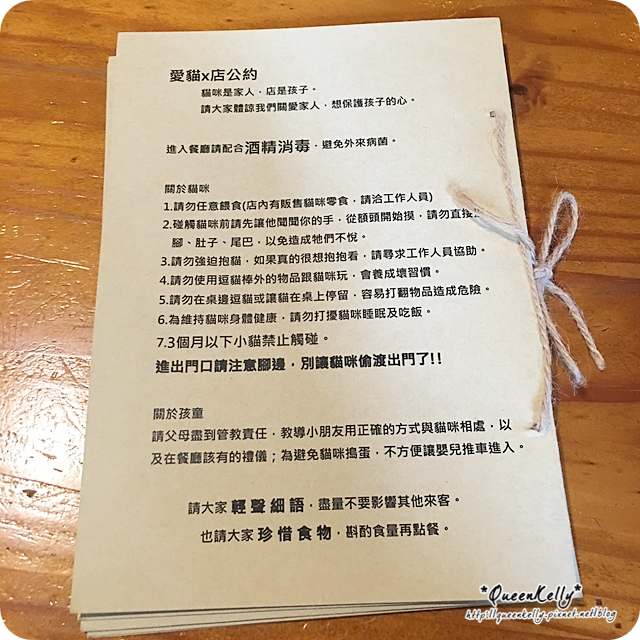 愛貓x店公約
貓咪是家人，店是孩子。
請大家體諒我們關愛家人，想保護孩子的心。
進入餐廳請配合酒精消毒，避免外來病菌。
關於貓咪
1.請勿任意餵食(店內有販售貓咪零食，請洽工作人員)
2.碰觸貓咪前請先讓他聞聞你的手，從額頭開始摸，請勿直接
腳、肚子、尾巴，以免造成牠們不悅。
3.請勿強迫抱貓，如果真的很想抱抱看，請尋求工作人員協助。
4.請勿使用逗貓棒外的物品跟貓咪玩，會養成壞習慣。
5.請勿在桌邊逗貓或讓貓在桌上停留，容易打翻物品造成危險。
6.為維持貓咪身體健康，請勿打擾貓咪睡眠及吃飯。
7.3個月以下小貓禁止觸碰。
進出門口請注意腳邊，別讓貓咪偷渡出門了!!
關於孩童
請父母盡到管教責任，教導小朋友用正確的方式與貓咪相處，以
及在餐廳該有的禮儀；為避免貓咪搗蛋，不方便讓嬰兒推車進入。
請大家 輕聲細語，盡量不要影響其他來客。
也請大家 珍惜食物，斟酌食量再點餐。
*QueenKelly*
http://queenkelly.pixnet.net/blog